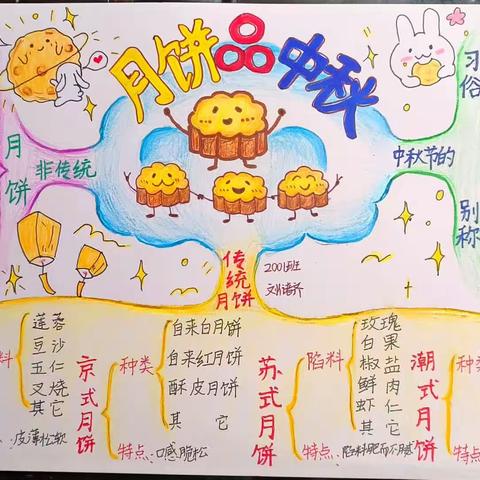 月饼品中秋
习俗
月饼
非传统
中秋节的
别称
传统月饼
2001班
料
莲蓉
豆沙
五仁
叉烧
其它
皮薄松软
京式月饼
种类
自来白月饼
自来红月饼
酥皮月饼
其它
特点:口感脆松
苏式月饼
陷料
玫瑰
白果
椒盐
鲜肉
虾仁
其它
特点:陷料肥而不腻
潮式月饼
种类
特点